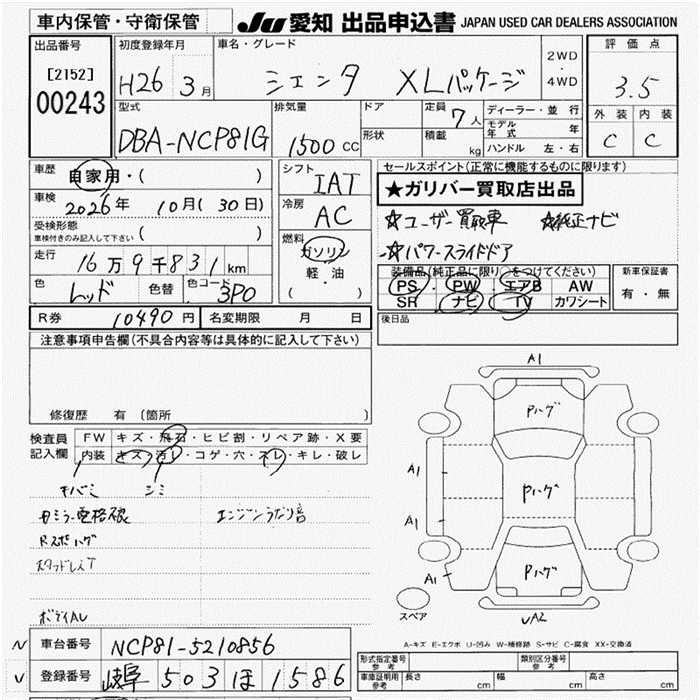 車内保管・守衛保管
JU 愛知 出品申込書 JAPAN USED CAR DEALERS ASSOCIATION
出品番号
[2152]
00243
初度登録年月
H26 3月
車名・グレード
シエンタ XLパッケージ
2WD
・
4WD
評価点
3.5
外装 内装
C C
型式
DBA-NCP81G
排気量
1500 CC
ドア
形状
定員 7人
積載 kg
ディーラー・並行
モデル年式 年
ハンドル 左・右
車歴 自家用・( )
車検 2026年 10月( 30日)
受検形態
車検付きのみ記入して下さい ( )
走行 16万9千831km
色 レッド 色替 色コード 3P0
シフト
IAT
冷房
AC
燃料
ガソリン
軽・油
( )
セールスポイント(正常に機能するものに限ります)
★ガリバー買取店出品
☆ユーザー買取車 ☆純正ナビ
☆パワースライドドア
装備品(純正品に限り○をつけてください)
PS・PW・エアB AW
SR ナビ TV カワシート
新車保証書
有・無
後日品
R券 10490円 名変期限 月 日
注意事項申告欄(不具合内容等は具体的に記入して下さい)
修復歴 有(箇所
検査員
記入欄
FW キズ・飛石・ヒビ割・リペア跡・X要
内装 キズ・汚レ・コゲ・穴・スレ・キレ・破レ
キバミ シミ
エンジンうなり音
Rスポハゲ
スタッドレスT
ボディAU
A1
Pハゲ
A1
Pハゲ
A1
A1
Pハゲ
スペア
A2
A-キズ E-エクボ U-凹み W-補修跡 S-サビ C-腐食 XX-交換済
車台番号 NCP81-5210856
登録番号 岐阜 503 ほ 1586
型式指定番号
参考
類別区分番号
参考
車庫証明用
参考
長さ cm 幅 cm 高さ cm